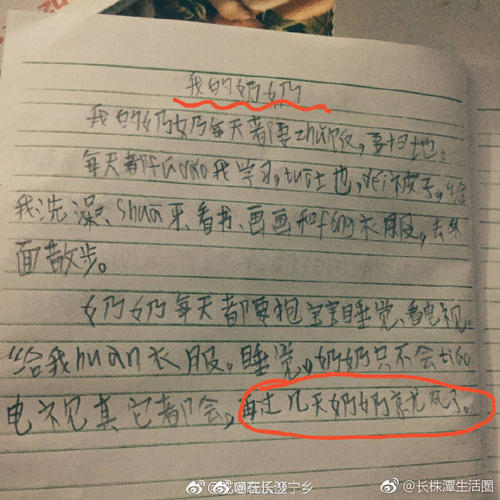 我的奶奶
我的奶奶每天都要zhǔ饭，要扫地。
每天都fudao我学习，tuō土也，被子，给
我洗澡、shuā牙、看书、画画和fang衣服，去外
面散步。
奶奶每天都要抱宝宝睡觉、看电视。
给我huan衣服。睡觉，奶奶只不会tiao
电视其它都会，再过几天奶奶就死了。
@长株潭生活圈